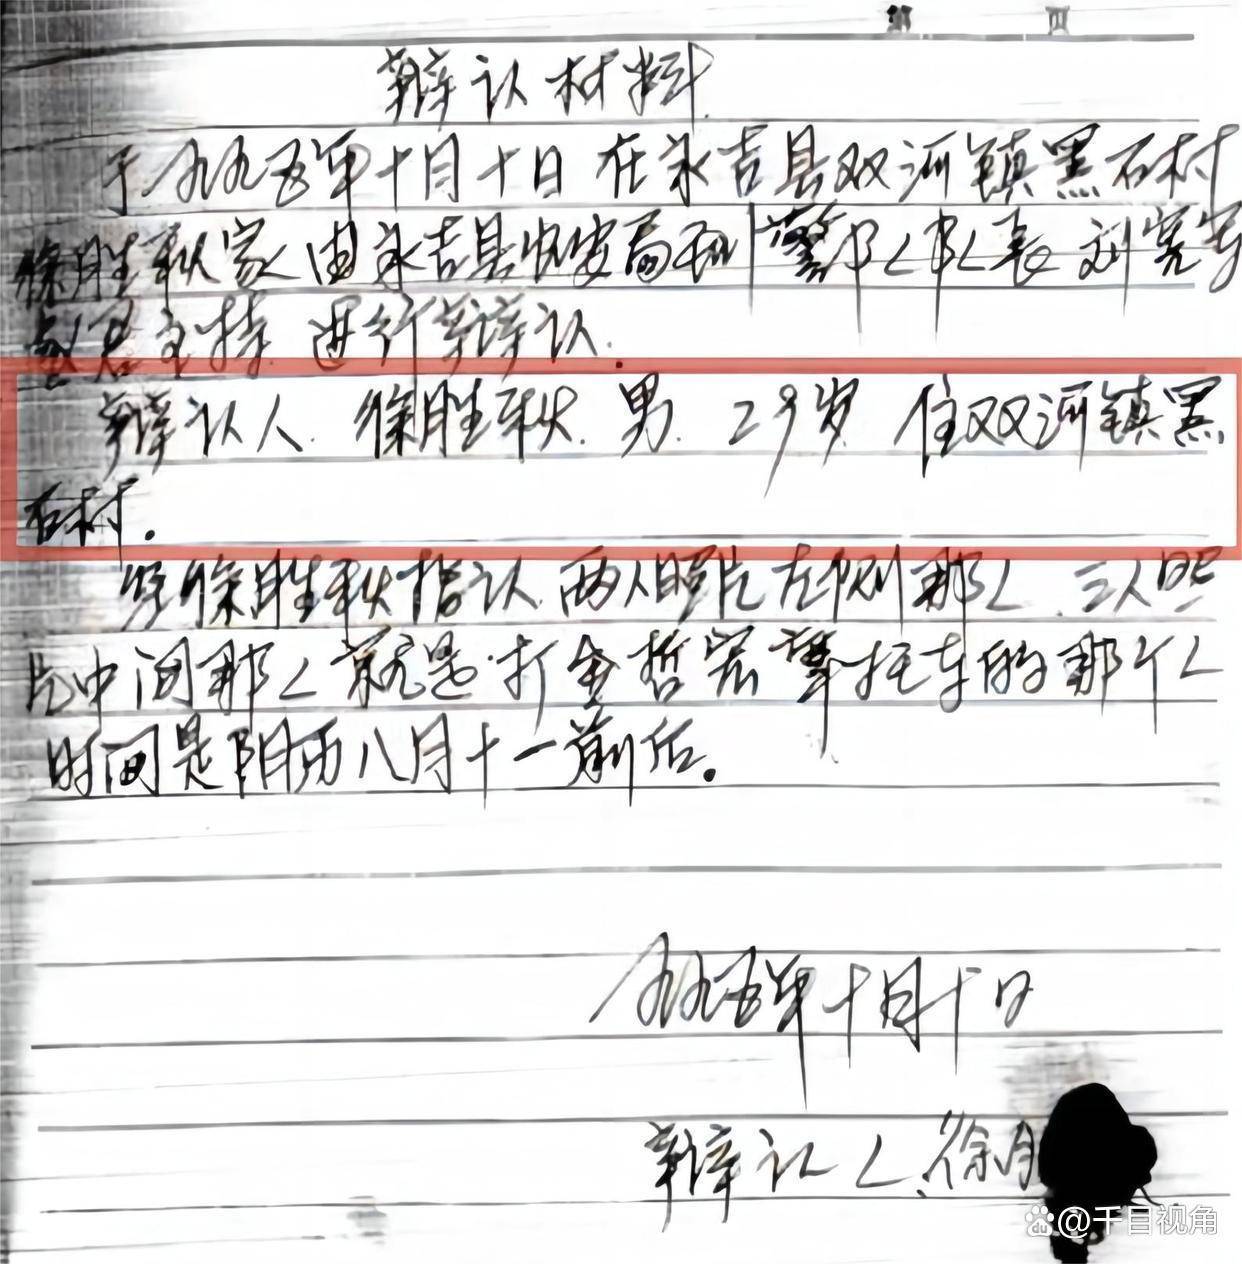 第 页
辩认材料
于一九九五年十月十日在永吉县双河镇黑石村
徐胜秋家由永吉县公安局刑警队队长刘宪
主持 进行辩认.
辩认人. 徐胜秋. 男. 29岁 住双河镇黑
石村.
经徐胜秋指认 两人照片左侧那人 三人照
片中间那人就是打金哲宏摩托车的那个人
时间是阴历八月十一前后.
一九九五年十月十日
辩认人.徐胜
@千目视角